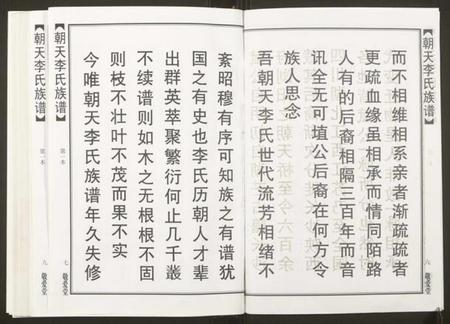 【朝天李氏族谱】
六
敬爱堂
而不相维相系亲者渐疏疏者
更疏血缘虽相承而情同陌路
人有的后裔相隔三百年而音
讯全无可塡公后裔在何方令
族人思念
吾朝天李氏世代流芳相绪不
紊昭穆有序可知族之有谱犹
国之有史也李氏历朝人才辈
出群英萃聚繁衍何止几千叢
不续谱则如木之无根根不固
则枝不壮叶不茂而果不实
今唯朝天李氏族谱年久失修
【朝天李氏族谱】
第一本
七
敬爱堂
【朝天李氏族谱】
第一本
九
敬爱堂